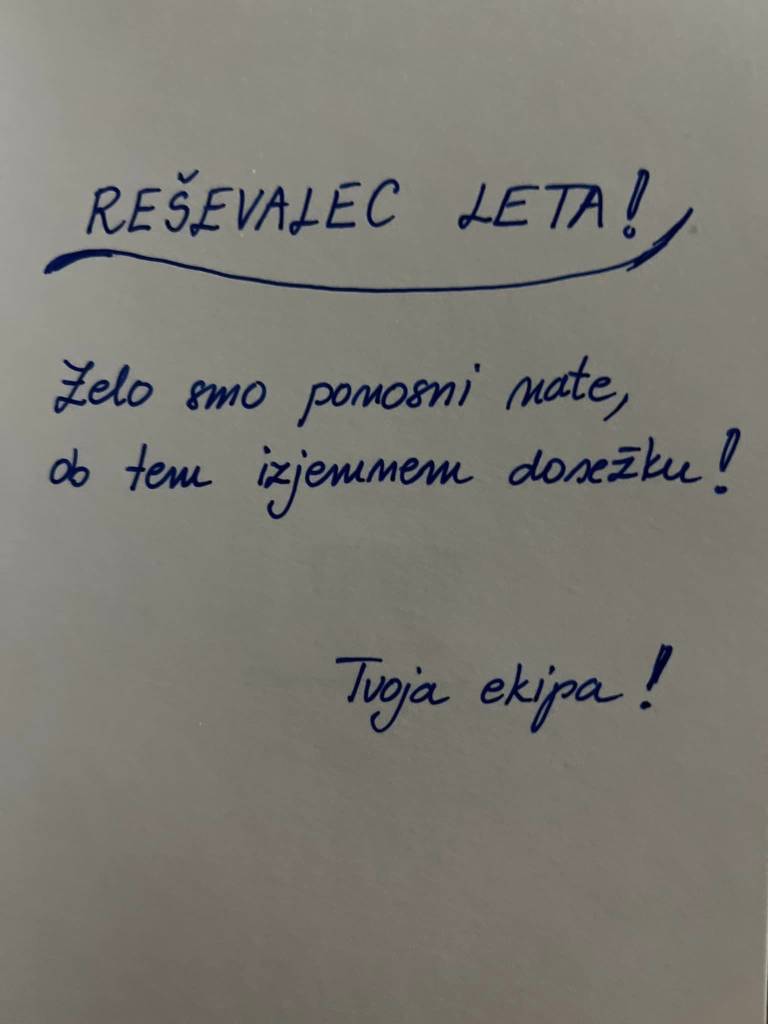 REŠEVALEC LETA!
Zelo smo ponosni nate,
ob tem izjemnem dosežku!
Tvoja ekipa!